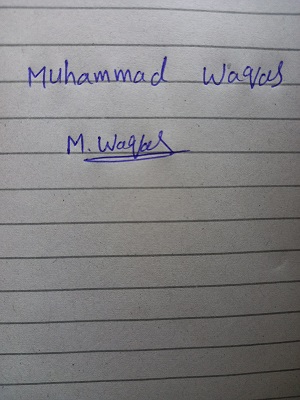 Muhammad Waqas
M. Waqas